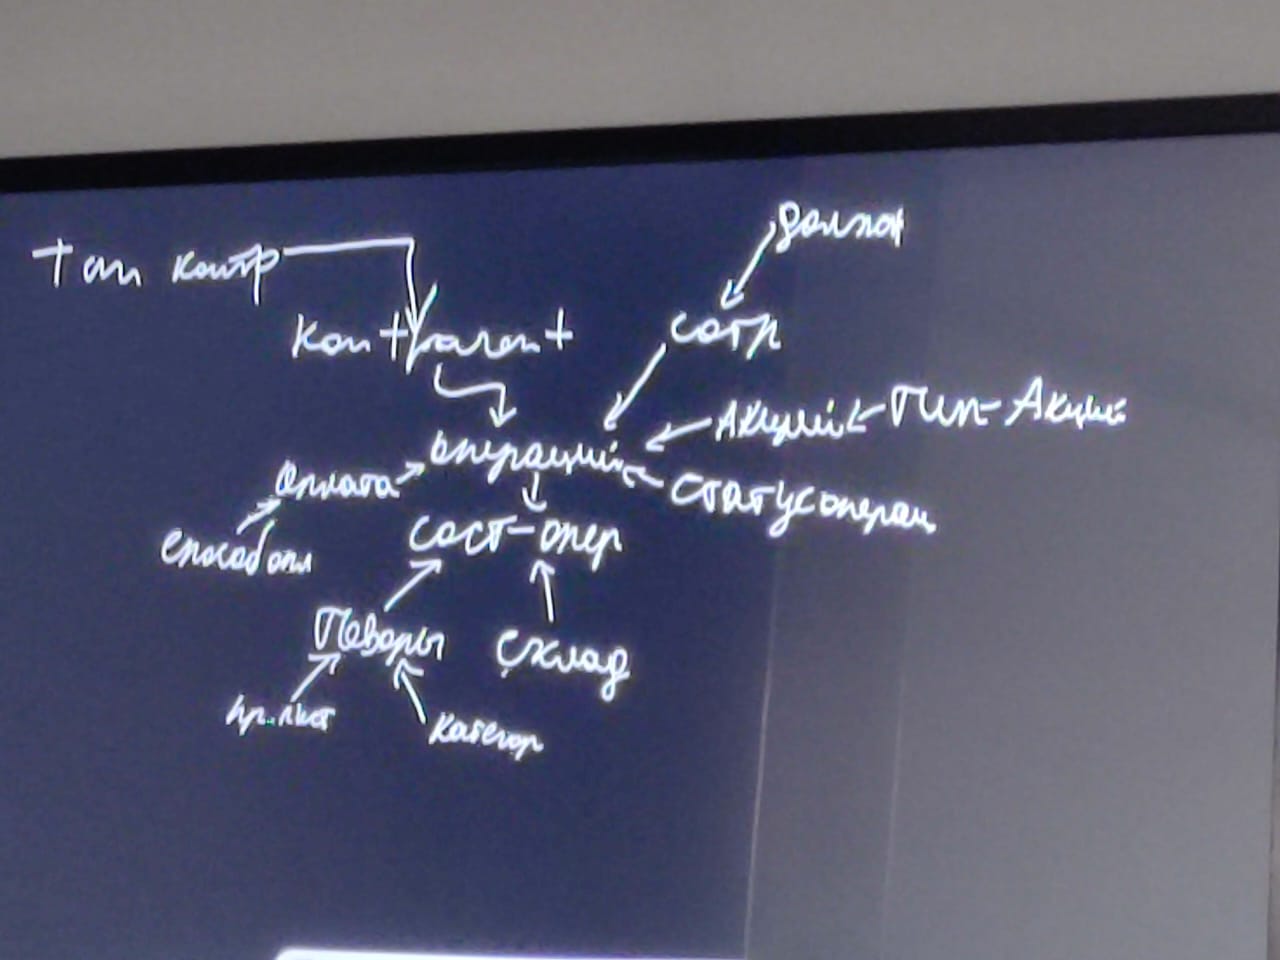 должн
Тип контр
Контрагент
сотр
Акции
Тип-Акции
операции
Оплата
Статус операц
сост-опер
способ опл
Товары
склад
пр.лист
категор